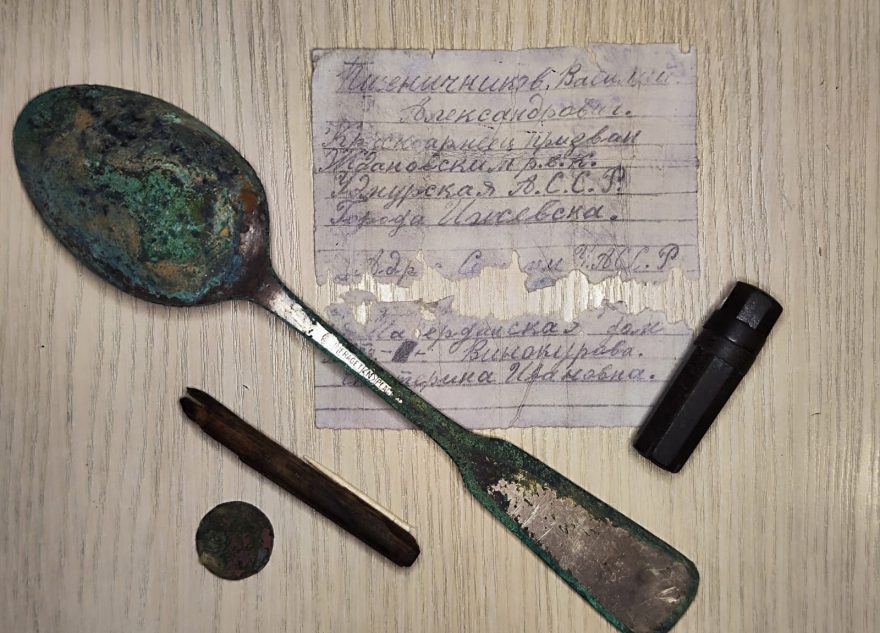 Пшеничников. Василий
Александрович.
Красноармеец призван
Ждановским р.в.к.
Удмурская А.С.С.Р.
Города Ижевска.
Адр УАСС.Р
дом
Винокурова.
Ивановна.